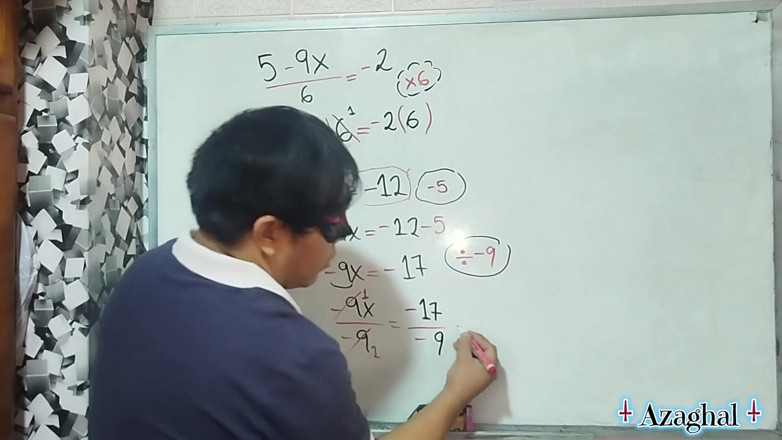 5 - 9x / 6 = -2 ×6
6 1 = -2(6)
= -12 -5
x = -12 - 5
-9x = -17 ÷ -9
-9x 1 / -9 1 = -17 / -9
Azaghal